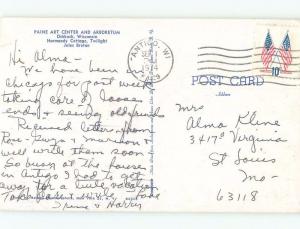 PAINE ART CENTER AND ARBORETUM
Oshkosh, Wisconsin
Normandy Cottage, Twilight
Jules Breton
Hi Alma-
We have been in
Chicago for past week
taking care of loose
ends & seeing old friends
Received letters from
Rose-Guys & Marion &
will write them soon
So busy at the house
in Antigo I had to get
away for a little vacation
Irene & Harry
ANTIGO, WI
1974
10¢
POST CARD
Address
Mrs
Alma Kline
3417a Virginia
St Louis
Mo-
63118